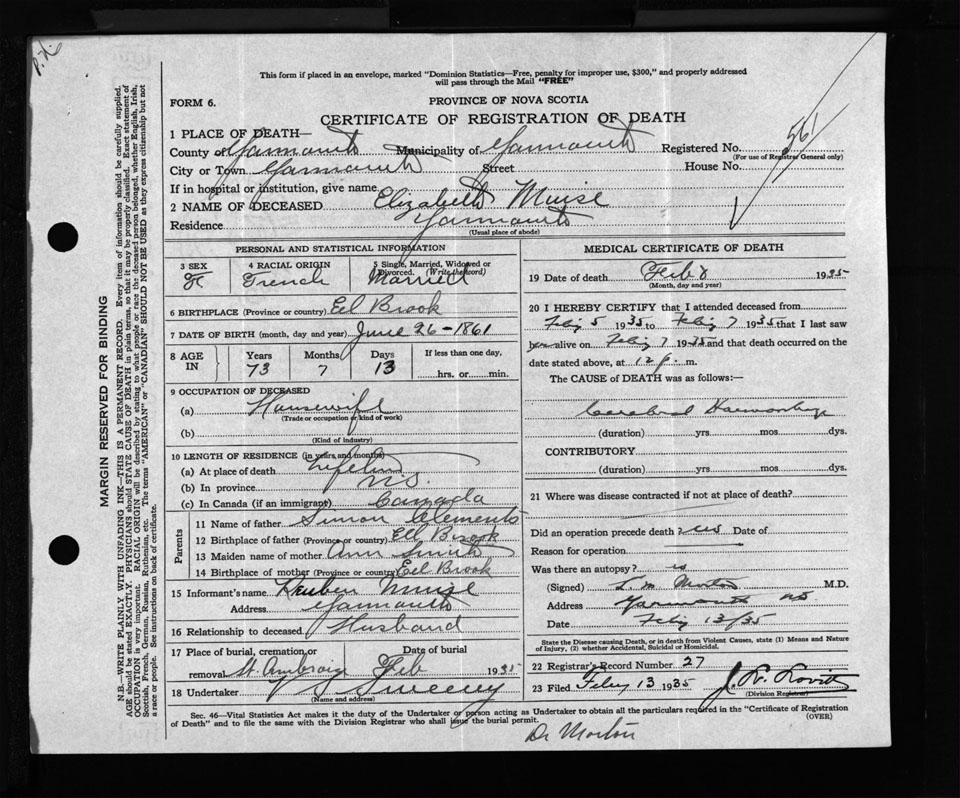 This form if placed in an envelope, marked "Dominion Statistics—Free, penalty for improper use, $300," and properly addressed
will pass through the Mail "FREE"
FORM 6.
PROVINCE OF NOVA SCOTIA
CERTIFICATE OF REGISTRATION OF DEATH
561
1 PLACE OF DEATH—
County of Yarmouth Municipality of Yarmouth Registered No.
(For use of Registrar General only)
City or Town Yarmouth Street House No.
If in hospital or institution, give name
2 NAME OF DECEASED Elizabeth Muise
Residence Yarmouth
(Usual place of abode)
MARGIN RESERVED FOR BINDING
N.B.—WRITE PLAINLY WITH UNFADING INK—THIS IS A PERMANENT RECORD. Every item of information should be carefully supplied.
AGE should be stated EXACTLY. PHYSICIANS should STATE CAUSE OF DEATH in plain terms, so that it may be properly classified. Exact statement of
OCCUPATION is very important. RACIAL ORIGIN will be described by stating to what people or race the deceased person belonged, whether English, Irish,
Scottish, French, German, Russian, Ruthenian, etc. The terms "AMERICAN" or "CANADIAN" SHOULD NOT BE USED as they express citizenship but not
a race or people. See instructions on back of certificate.
PERSONAL AND STATISTICAL INFORMATION
3 SEX
F
4 RACIAL ORIGIN
French
5 Single, Married, Widowed or
Divorced. (Write the word)
Married
6 BIRTHPLACE (Province or country) Eel Brook
7 DATE OF BIRTH (month, day and year) June 26-1861
8 AGE IN
Years Months Days If less than one day,
73 7 13 hrs. or min.
9 OCCUPATION OF DECEASED
(a) Housewife
(Trade or occupation or kind of work)
(b)
(Kind of industry)
10 LENGTH OF RESIDENCE (in years and months)
(a) At place of death Lifetime
(b) In province N.S.
(c) In Canada (if an immigrant) Canada
Parents
11 Name of father Simon Clements
12 Birthplace of father (Province or country) Eel Brook
13 Maiden name of mother Ann Smith
14 Birthplace of mother (Province or country) Eel Brook
15 Informant's name Reuben Muise
Address Yarmouth
16 Relationship to deceased Husband
17 Place of burial, cremation or Date of burial
removal St. Ambrose Feb 1935
18 Undertaker V S Sweeny
(Name and address)
MEDICAL CERTIFICATE OF DEATH
19 Date of death Feb 8 1935
(Month, day and year)
20 I HEREBY CERTIFY that I attended deceased from
Feby 5 1935 to Feby 7 1935 that I last saw
her alive on Feby 7 1935 and that death occurred on the
date stated above, at 12 p. m.
The CAUSE of DEATH was as follows:—
Cerebral Haemorrhage
(duration) yrs. mos. dys.
CONTRIBUTORY
(duration) yrs. mos. dys.
21 Where was disease contracted if not at place of death?
Did an operation precede death? no Date of
Reason for operation
Was there an autopsy? no
(Signed) L. M. Morton M.D.
Address Yarmouth NS
Date Feby 13/35
State the Disease causing Death, or in death from Violent Causes, state (1) Means and Nature
of Injury, (2) whether Accidental, Suicidal or Homicidal.
22 Registrar's Record Number 27
23 Filed Feby 13 1935 J. R. Lovitt
(Division Registrar)
Sec. 46—Vital Statistics Act makes it the duty of the Undertaker or person acting as Undertaker to obtain all the particulars required in the "Certificate of Registration
of Death" and to file the same with the Division Registrar who shall issue the burial permit. (OVER)
Dr Morton